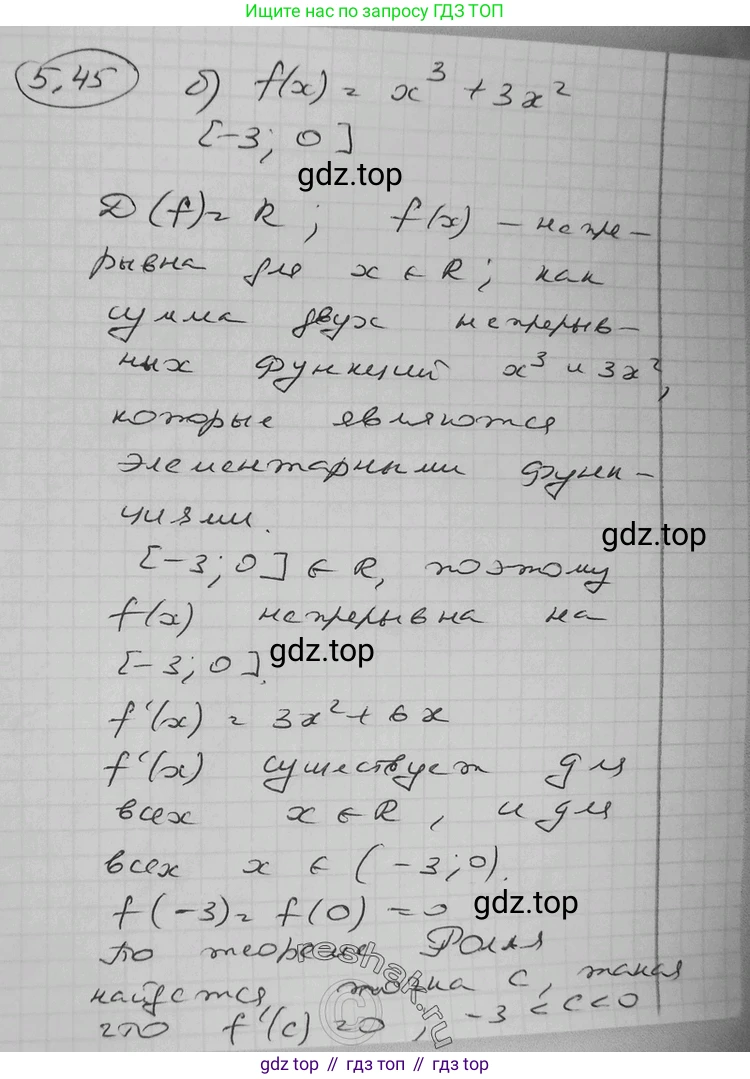 Ищите нас по запросу ГДЗ ТОП
5.45 б) f(x) = x³ + 3x²
[-3; 0]
gdz.top
D(f) = R; f(x) - непре-
рывна для x ∈ R; как
сумма двух непрерыв-
ных функций x³ и 3x²,
которые являются
элементарными функ-
циями.
gdz.top
[-3; 0] ∈ R, поэтому
f(x) непрерывна на
[-3; 0].
gdz.top
f'(x) = 3x² + 6x
f'(x) существует для
всех x ∈ R, и для
всех x ∈ (-3; 0).
f(-3) = f(0) = 0
gdz.top
По теореме Ролля
найдется точка c, такая
что f'(c) = 0, -3 < c < 0
reshak.ru
©
gdz.top // гдз топ // gdz.top // гдз.top